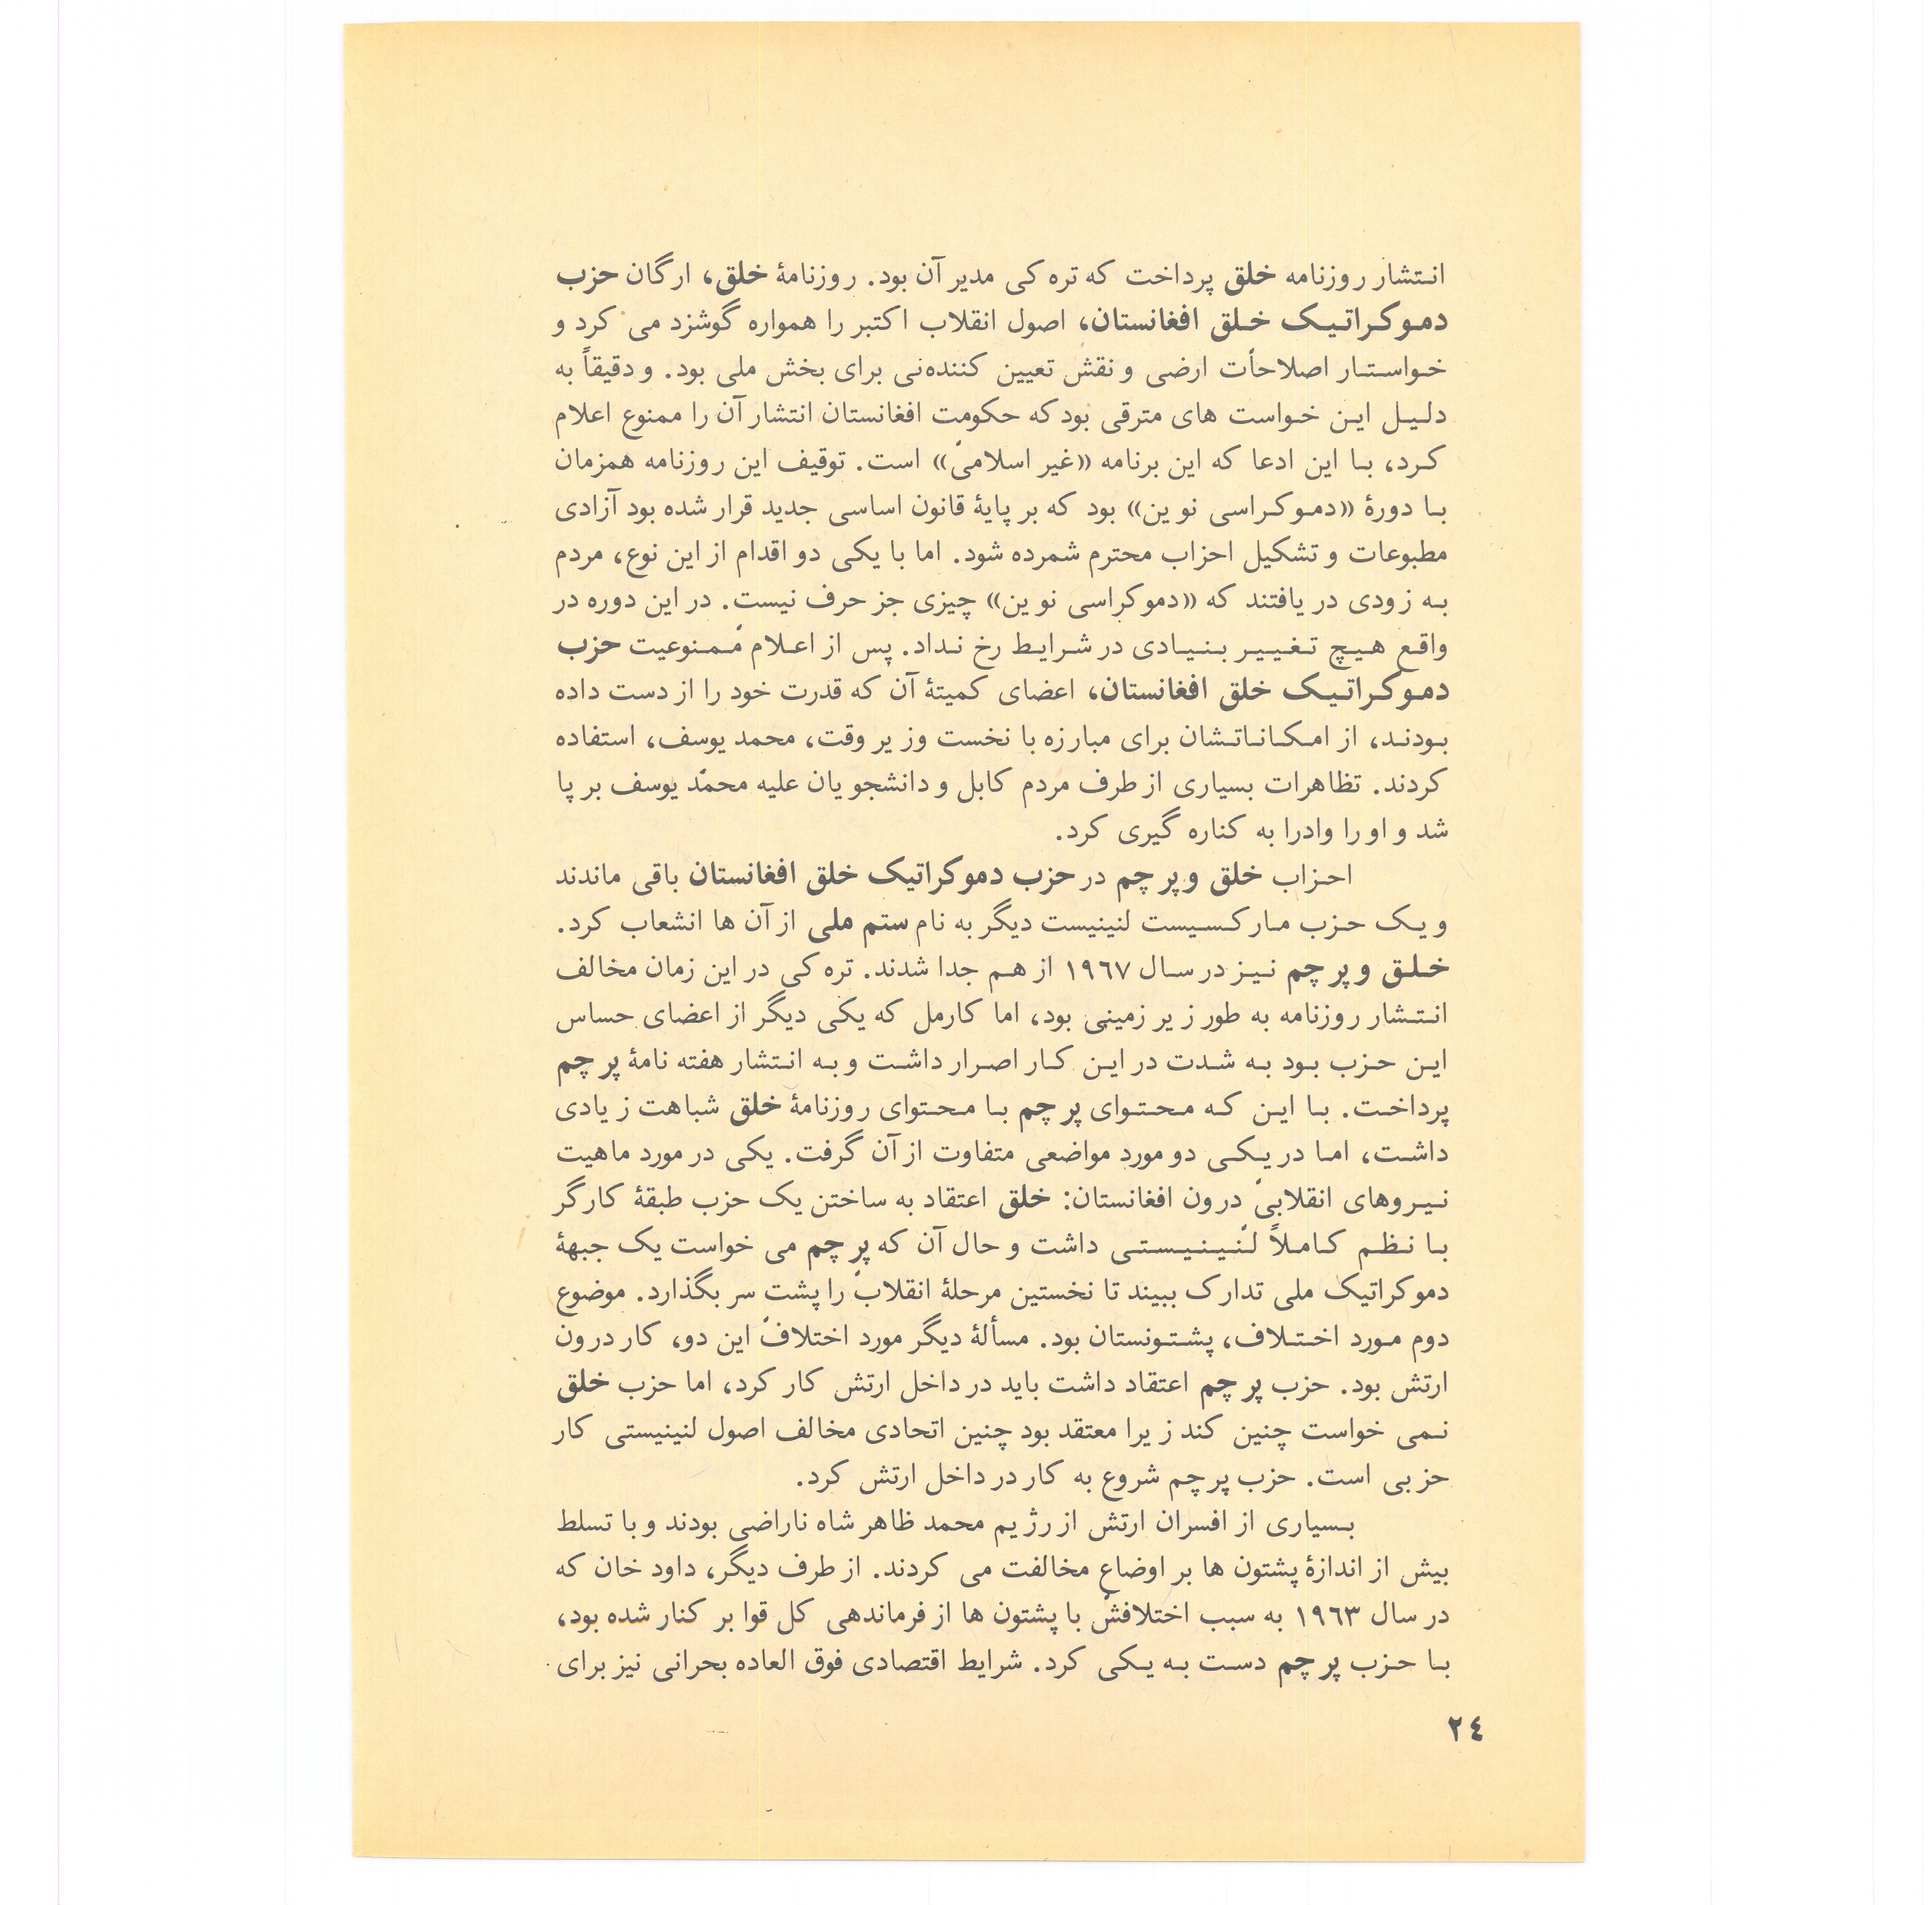 انتشار روزنامه خلق پرداخت که تره کی مدیر آن بود. روزنامهٔ خلق، ارگان حزب
دموکراتیک خلق افغانستان، اصول انقلاب اکتبر را همواره گوشزد می کرد و
خواستار اصلاحات ارضی و نقش تعیین کننده‌ئی برای بخش ملی بود. و دقیقاً به
دلیل این خواست های مترقی بود که حکومت افغانستان انتشار آن را ممنوع اعلام
کرد، با این ادعا که این برنامه «غیر اسلامی» است. توقیف این روزنامه همزمان
با دورهٔ «دموکراسی نوین» بود که بر پایهٔ قانون اساسی جدید قرار شده بود آزادی
مطبوعات و تشکیل احزاب محترم شمرده شود. اما با یکی دو اقدام از این نوع، مردم
به زودی دریافتند که «دموکراسی نوین» چیزی جز حرف نیست. در این دوره در
واقع هیچ تغییر بنیادی در شرایط رخ نداد. پس از اعلام ممنوعیت حزب
دموکراتیک خلق افغانستان، اعضای کمیتهٔ آن که قدرت خود را از دست داده
بودند، از امکاناتشان برای مبارزه با نخست وزیر وقت، محمد یوسف، استفاده
کردند. تظاهرات بسیاری از طرف مردم کابل و دانشجویان علیه محمّد یوسف بر پا
شد و او را وادرا به کناره گیری کرد.
احزاب خلق و پرچم در حزب دموکراتیک خلق افغانستان باقی ماندند
و یک حزب مارکسیست لنینیست دیگر به نام ستم ملی از آن ها انشعاب کرد.
خلق و پرچم نیز در سال ۱۹٦۷ از هم جدا شدند. تره کی در این زمان مخالف
انتشار روزنامه به طور زیر زمینی بود، اما کارمل که یکی دیگر از اعضای حساس
این حزب بود به شدت در این کار اصرار داشت و به انتشار هفته نامهٔ پرچم
پرداخت. با این که محتوای پرچم با محتوای روزنامهٔ خلق شباهت زیادی
داشت، اما در یکی دو مورد مواضعی متفاوت از آن گرفت. یکی در مورد ماهیت
نیروهای انقلابی درون افغانستان: خلق اعتقاد به ساختن یک حزب طبقهٔ کارگر
با نظم کاملاً لنینیستی داشت و حال آن که پرچم می خواست یک جبههٔ
دموکراتیک ملی تدارک ببیند تا نخستین مرحلهٔ انقلاب را پشت سر بگذارد. موضوع
دوم مورد اختلاف، پشتونستان بود. مسألهٔ دیگر مورد اختلاف این دو، کار درون
ارتش بود. حزب پرچم اعتقاد داشت باید در داخل ارتش کار کرد، اما حزب خلق
نمی خواست چنین کند زیرا معتقد بود چنین اتحادی مخالف اصول لنینیستی کار
حزبی است. حزب پرچم شروع به کار در داخل ارتش کرد.
بسیاری از افسران ارتش از رژیم محمد ظاهر شاه ناراضی بودند و با تسلط
بیش از اندازهٔ پشتون ها بر اوضاع مخالفت می کردند. از طرف دیگر، داود خان که
در سال ۱۹٦۳ به سبب اختلافش با پشتون ها از فرماندهی کل قوا بر کنار شده بود،
با حزب پرچم دست به یکی کرد. شرایط اقتصادی فوق العاده بحرانی نیز برای
۲٤